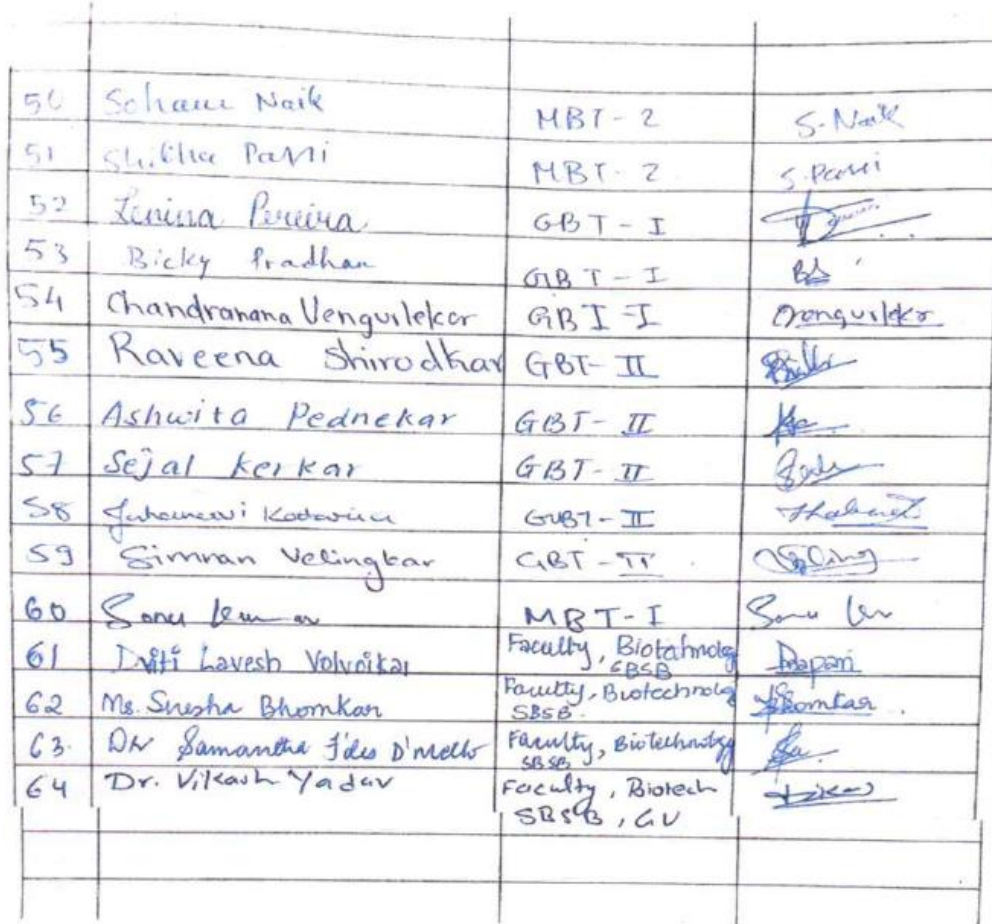 50 Soham Naik MBT-2 S. Naik
51 Shikha Parri MBT-2 S. Parri
52 Lenina Pereira GBT-I
53 Bicky Pradhan GBT-I BS
54 Chandranana Vengurlekar GBI-I Cvengurlekr
55 Raveena Shirodkar GBT-II
56 Ashwita Pednekar GBT-II
57 Sejal Kerkar GBT-II
58 GBT-II
59 Simran Velingkar GBT-II
60 Sonu Kumar MBT-I Sonu
61 Driti Lavesh Volvoikar Faculty, Biotahnolog
SBSB
62 Ms. Snesha Bhomkar Faculty, Biotechnolog Bhomkar
SBSB.
63. Dr Samantha F'des D'mello Faculty, Biotechnology
SBSB
64 Dr. Vikash Yadav Faculty, Biotech
SBSB, GU